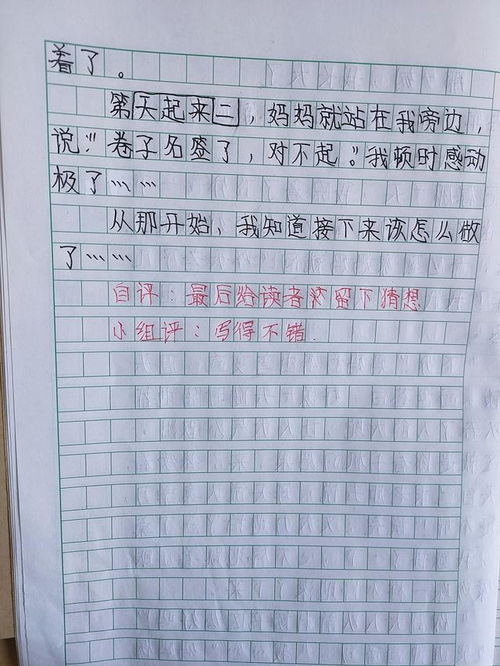 着了。
第天起来二，妈妈就站在我旁边，
说："卷子名签了，对不起。"我顿时感动
极了……
从那开始、我知道接下来该怎么做
了……
自评：最后给读者留下猜想
小组评：写得不错.